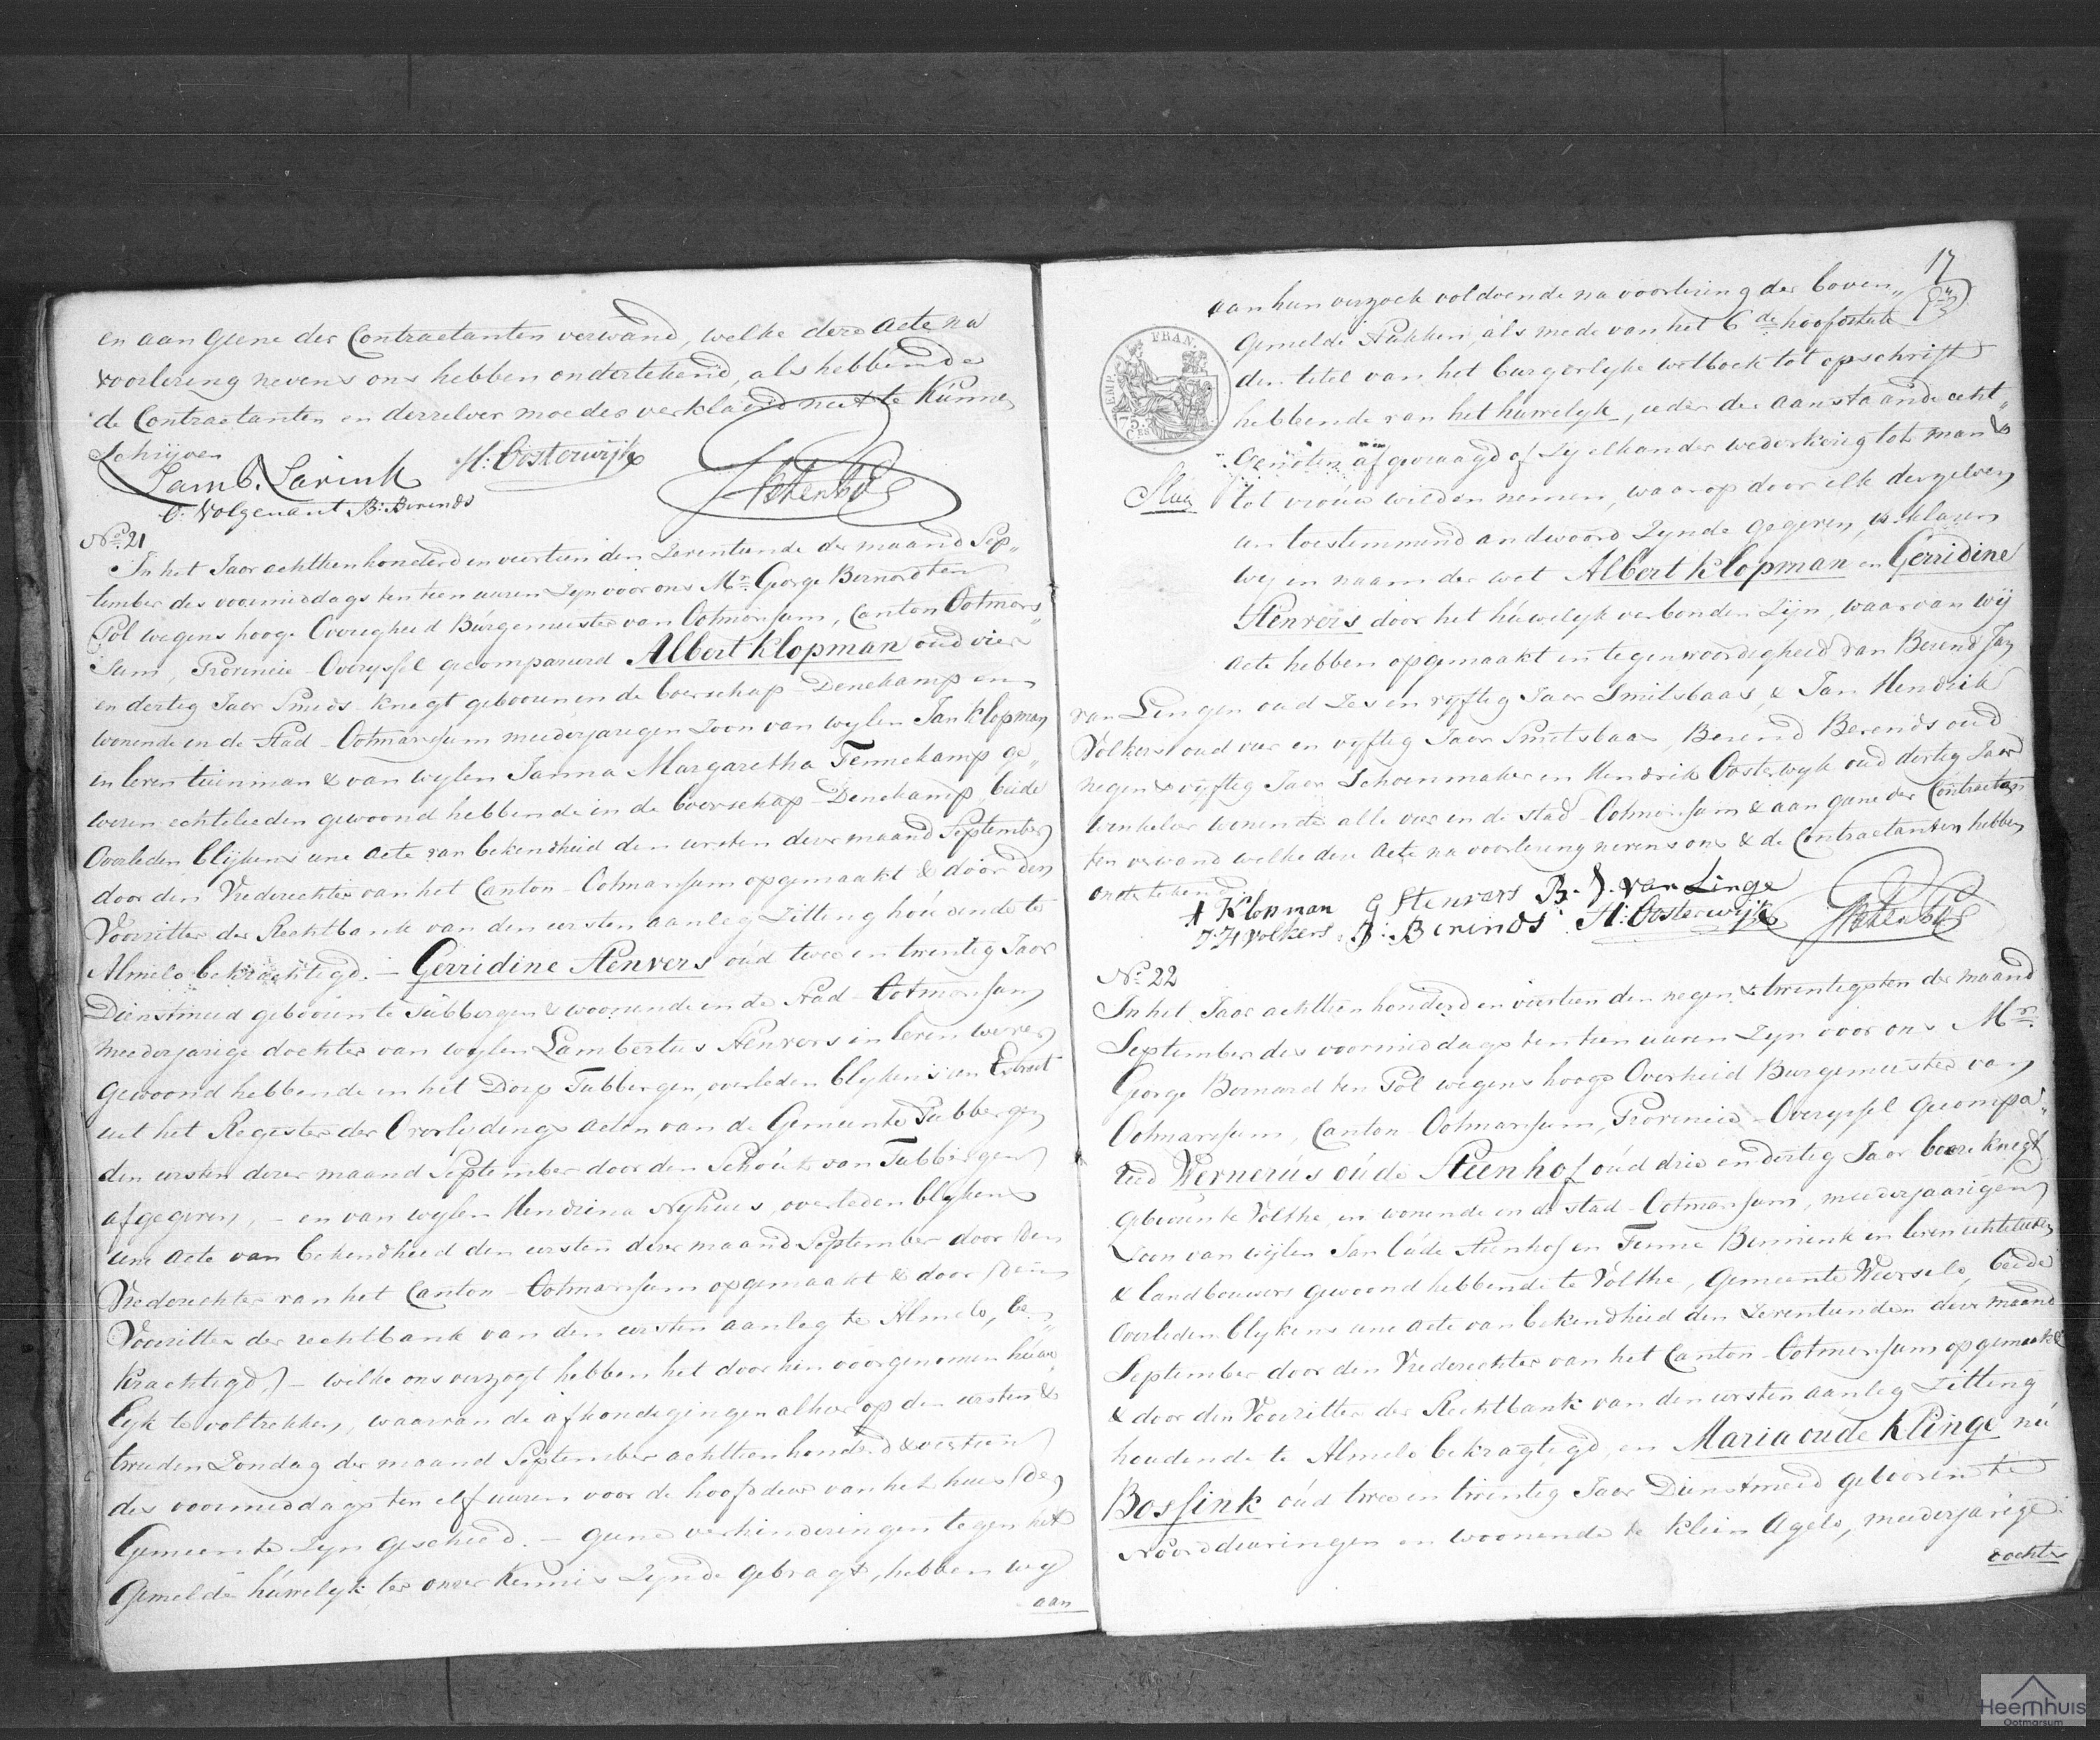 en aan geene der Contractanten verwand, welke deze acte na
voorlezing nevens ons hebben ondertekend, als hebbende
de Contractanten en derzelver moeder verklaard niet te kúnnen
Schrijven
Lamb. Larink H: Oosterwijk
G: Volgenant B: Berends
No. 21
In het Jaar achthienhonderd en veertien den Zeventiende der maand Sep„
tember des voormiddags ten tien uuren Zyn voor ons Mr. George Bernard ten
Pol wegens hooge Overigheid Búrgemeister van Ootmarsum, Canton Ootmars„
Sum, Provincie Overyssel gecompareerd Albert Klopman oud vier
en dertig Jaar Smids-knegt gebooren in de boerschap Denekamp en
wonende in de Stad Ootmarssum meerderjarigen Zoon van wylen Jan Klopman
in leven tuinman & van wylen Janna Margaretha Tennekamp ge„
weezen echtelieden gewoond hebbende in de boerschap Denekamp, beide
Overleden blijkens eene acte van bekendheid den eersten dezer maand September
door den Vrederechter van het Canton Ootmarssum opgemaakt & door den
Voorzitter der Rechtbank van den eersten aanleg Zitting hóúdende te
Almelo bekrachtigd. – Gerridine Stenvers oúd twee en twentig Jaar
Dienstmeid gebooren te Túbbergen & woonende in de Stad Ootmarssum
meerderjarige dochter van wylen Lambertus Stenvers in leven wever
gewoond hebbende in het Dorp Tubbergen, overleden blykens een Extract
uit het Register der Overlydings acten van de Gemeente Tubbergen
den eersten dezer maand September door den Schóút van Tubbergen
afgegeven, – en van wylen Hendrina Nyhuis, overleden blykens
eene acte van bekendheid den eersten dezer maand September door den
Vrederechter van het Canton Ootmarssum opgemaakt & door den
Voorzitter der rechtbank van den eersten aanleg te Almelo, be„
krachtigd, – welke ons verzogt hebben het door hen voorgenomen húwe„
lyk te voltrekken, waarvan de afkondigingen alhier op den eersten &
tweeden Zondag der maand September achttienhonderd & veertien
des voormiddags ten elf uuren voor de hoofddeur van het huis der
Gemeente Zyn geschied. – geene verhinderingen tegen het
gemelde húwelyk ter onzer kennis Zynde gebragt, hebben wy
aan
17
aan hun verzoek voldoende na voorlezing der boven„
gemelde Stukken, als mede van het 6de hoofdstuk
den titel van het burgerlyke wetboek tot opschrift
hebbende van het húwelyk, ieder der aanstaande echt„
Genoten afgevraagd of Zy elkander wederkerig tot man &
tot vróúw wilden nemen, waarop door elk derzelven
een toestemmend andwoord Zynde gegeven, verklaren
wy in naam der wet Albert Klopman en Gerridine
Stenvers door het húwelyk verbonden Zijn, waarvan wij
acte hebben opgemaakt in tegenwoordigheid van Berend Jan
van Lingen oud Zes en vyftig Jaar Smitsbaas, & Jan Hendrik
Volkers oud vier en vyftig Jaar Smitsbaas, Berend Berends oud
negen & vyftig Jaar Schoenmaker en Hendrik Oosterwyk oud dertig Jaar
winkelier wonende alle vier in de stad Ootmarsum & aan geene der Contractan
ten verwand welke deze acte na voorlezing nevens ons & de Contractanten hebben
ondertekend
A Klopman G Stenvers B. J. van Linge
J: H Volkers B: Berends H: Oosterwijk
EMP. FRAN.
75. Ces
No. 22
In het Jaar achttien honderd en viertien den negen & twentigsten der maand
September des voormiddags ten tien uuren Zyn voor ons Mr.
George Bernard ten Pol wegens hooge Overheid Burgemeister van
Ootmarssum, Canton Ootmarssum, Provincie Overyssel gecompa„
reerd Wernerús oúde Steenhof oúd drie en dertig Jaar boere knegt
gebooren te Volthe, en wonende in de stad Ootmarssum, meerderjaarigen
Zoon van wijlen Jan Oúde Steenhof en Fenne Bennink in leven echtelieden
& landbouwers gewoond hebbende te Volthe, Gemeente Weerselo, beide
Overleden blykens eene acte van bekendheid den Zeventienden dezer maand
September door den Vrederechter van het Canton Ootmarssum opgemaakt
& door den Voorzitter der Rechtbank van den eersten aanleg Zitting
houdende te Almelo bekragtigd, en Maria oude Klinge nú
Bossink oúd twee en twintig Jaar Dienstmeid gebooren te
Nóórddeuringen en woonende te klein Agelo, meerderjarige
dochter
Heemhuis
Ootmarsum